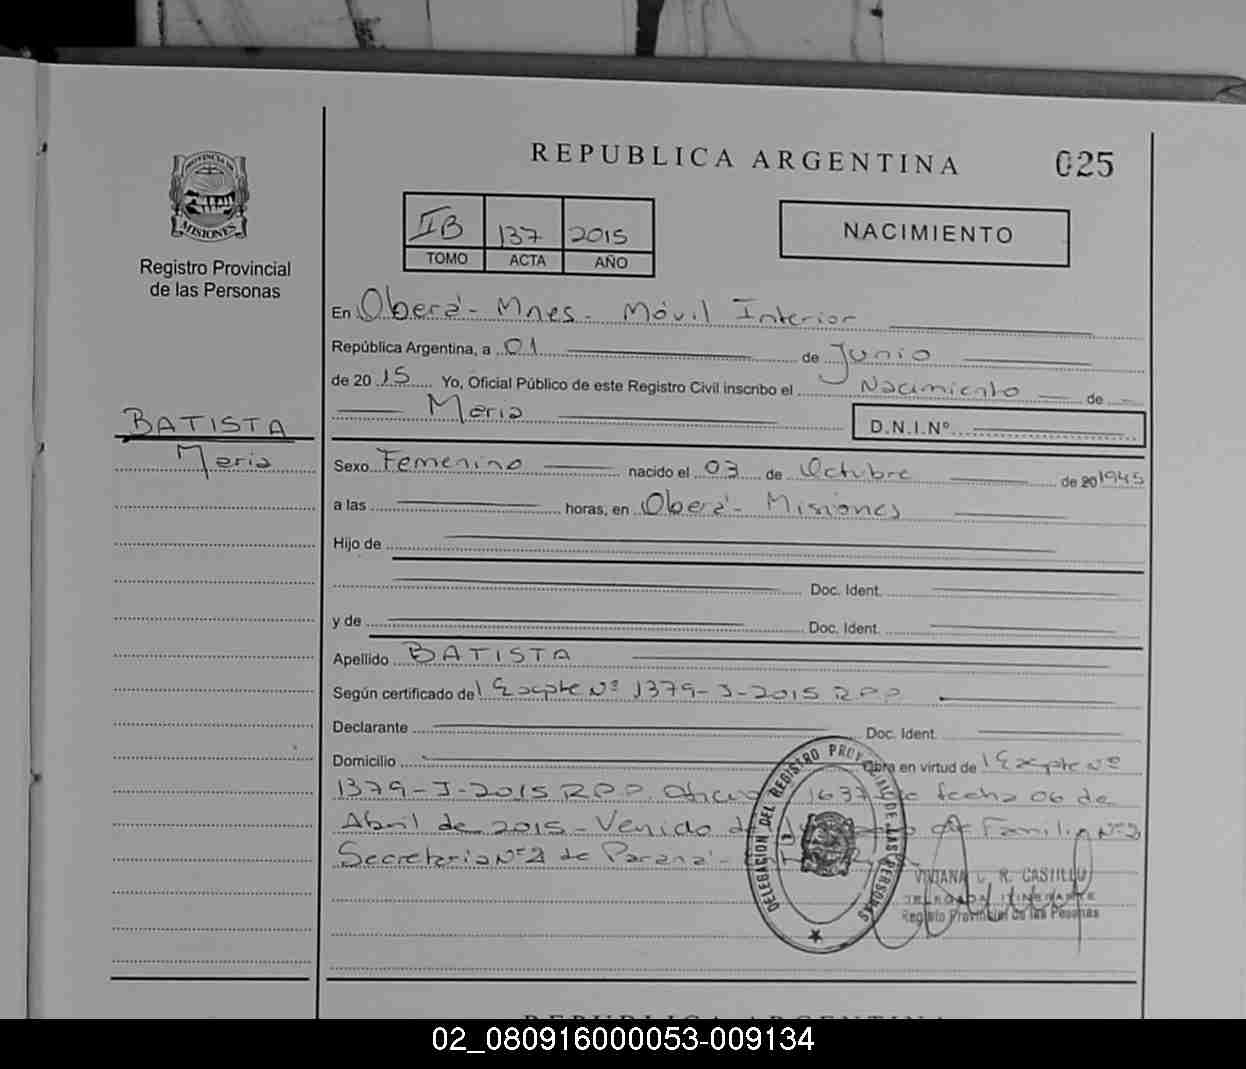 REPUBLICA ARGENTINA
025
PROVINCIA DE
MISIONES
Registro Provincial
de las Personas
IB 137 2015
TOMO ACTA AÑO
NACIMIENTO
En Oberá - Mnes - Móvil Interior
República Argentina, a 01 de Junio
de 2015 Yo, Oficial Público de este Registro Civil inscribo el Nacimiento de
Maria
D.N.I.Nº
BATISTA
Maria
Sexo Femenino nacido el 03 de Octubre de 20 1945
a las horas, en Oberá - Misiones
Hijo de
Doc. Ident.
y de Doc. Ident.
Apellido BATISTA
Según certificado de Expte Nº 1379-J-2015 R.P.P.
Declarante Doc. Ident.
Domicilio Obra en virtud de Expte Nº
1379-J-2015 R.P.P. Oficio 1637 de fecha 06 de
Abril de 2015 - Venido de Familia Nº2
Secretaria Nº2 de Paraná -
DELEGACION DEL REGISTRO PROVINCIAL DE LAS PERSONAS
VIVIANA L. R. CASTILLO
DELEGADA ITINERANTE
Registro Provincial de las Personas
REPUBLICA ARGENTINA
02_080916000053-009134